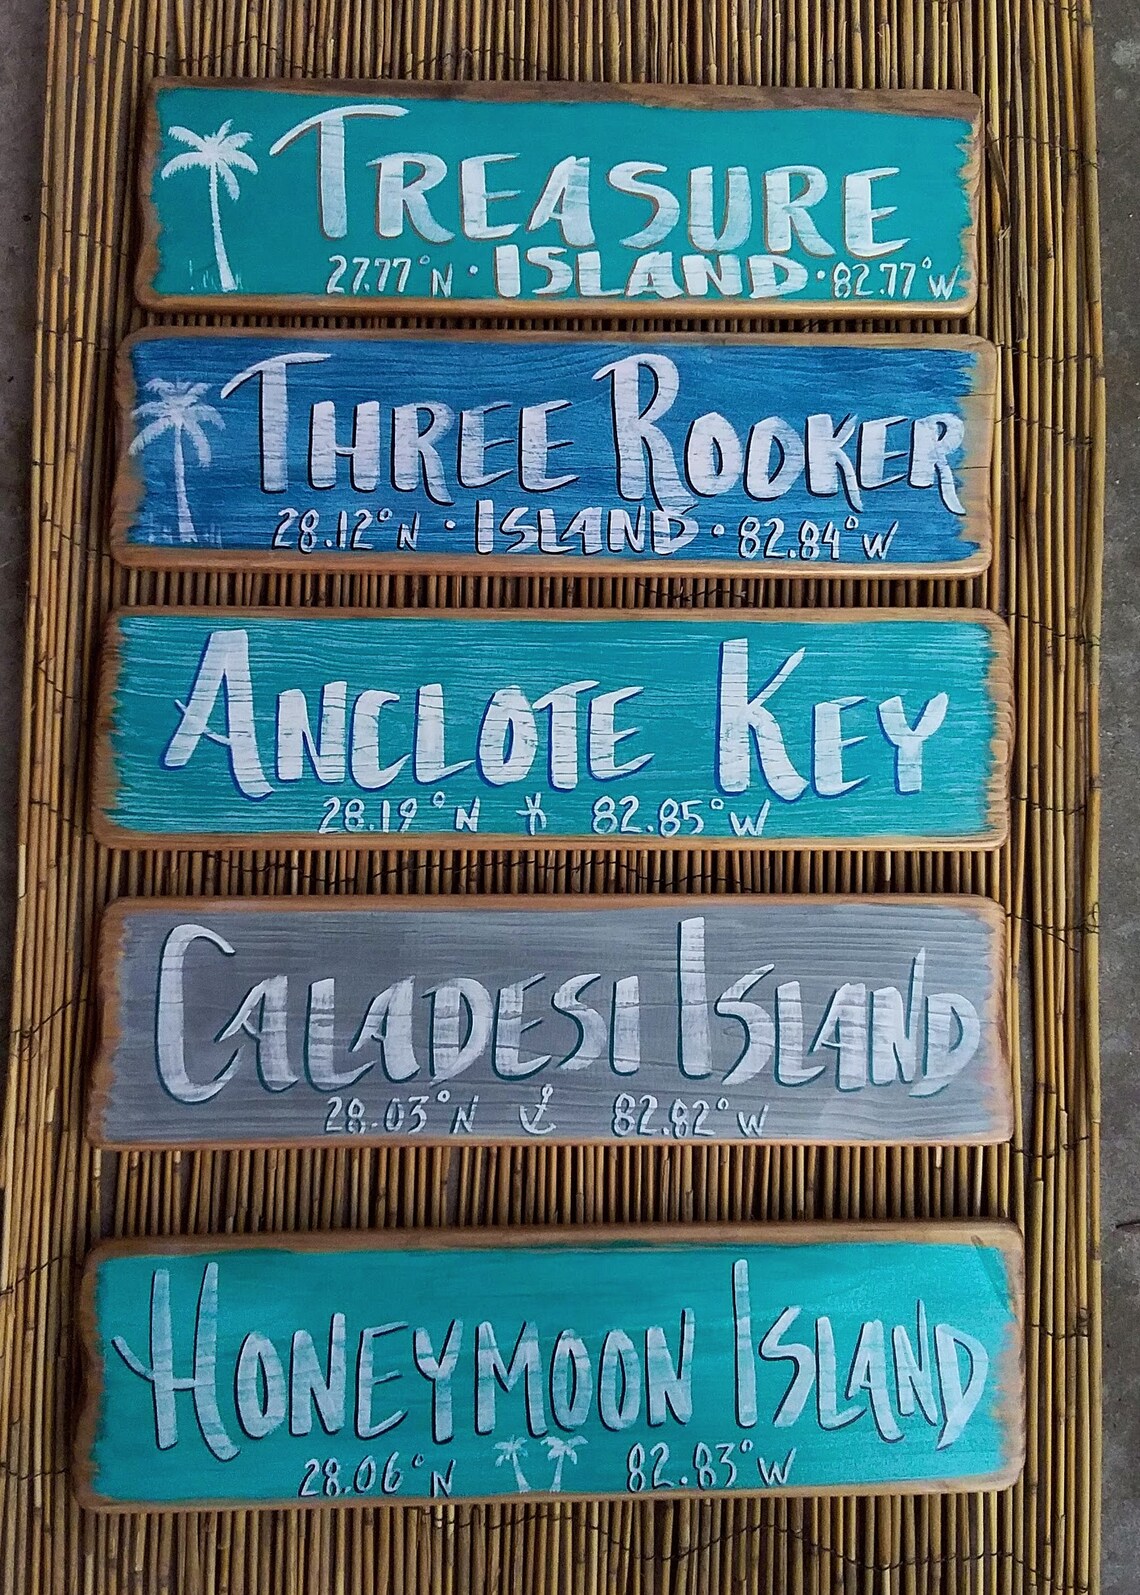 TREASURE
27.77°N · ISLAND · 82.77°W
THREE ROOKER
28.12°N · ISLAND · 82.84°W
ANCLOTE KEY
28.19°N 82.85°W
CALADESI ISLAND
28.03°N 82.82°W
HONEYMOON ISLAND
28.06°N 82.83°W